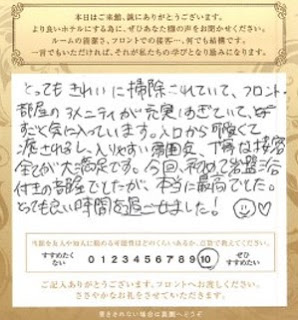 本日はご来館、誠にありがとうございます。
より良いホテルにする為に、ぜひあなた様の声をお聞かせください。
ルームの清潔さ、フロントでの接客…、何でも結構です。
一言でもいただければ、それが私たちの学びとなり励みになります。
とってもきれいに掃除されていて、フロント・
部屋のアメニティが充実しすぎていて、
すごく気に入っています。入口から明るくて
癒されるし、入りやすい雰囲気、丁寧な接客
全てが大満足です。今回、初めて岩盤浴
付きの部屋でしたが、本当に最高でした。
とっても良い時間を過ごせました!
当館を友人や知人に勧める可能性はどのくらいあるか、点数で教えてください。
すすめたくない 0 1 2 3 4 5 6 7 8 9 10 ぜひすすめたい
ご記入ありがとうございます。フロントへお渡しください。
ささやかなお礼をさせていただきます。
書ききれない場合は裏面へどうぞ